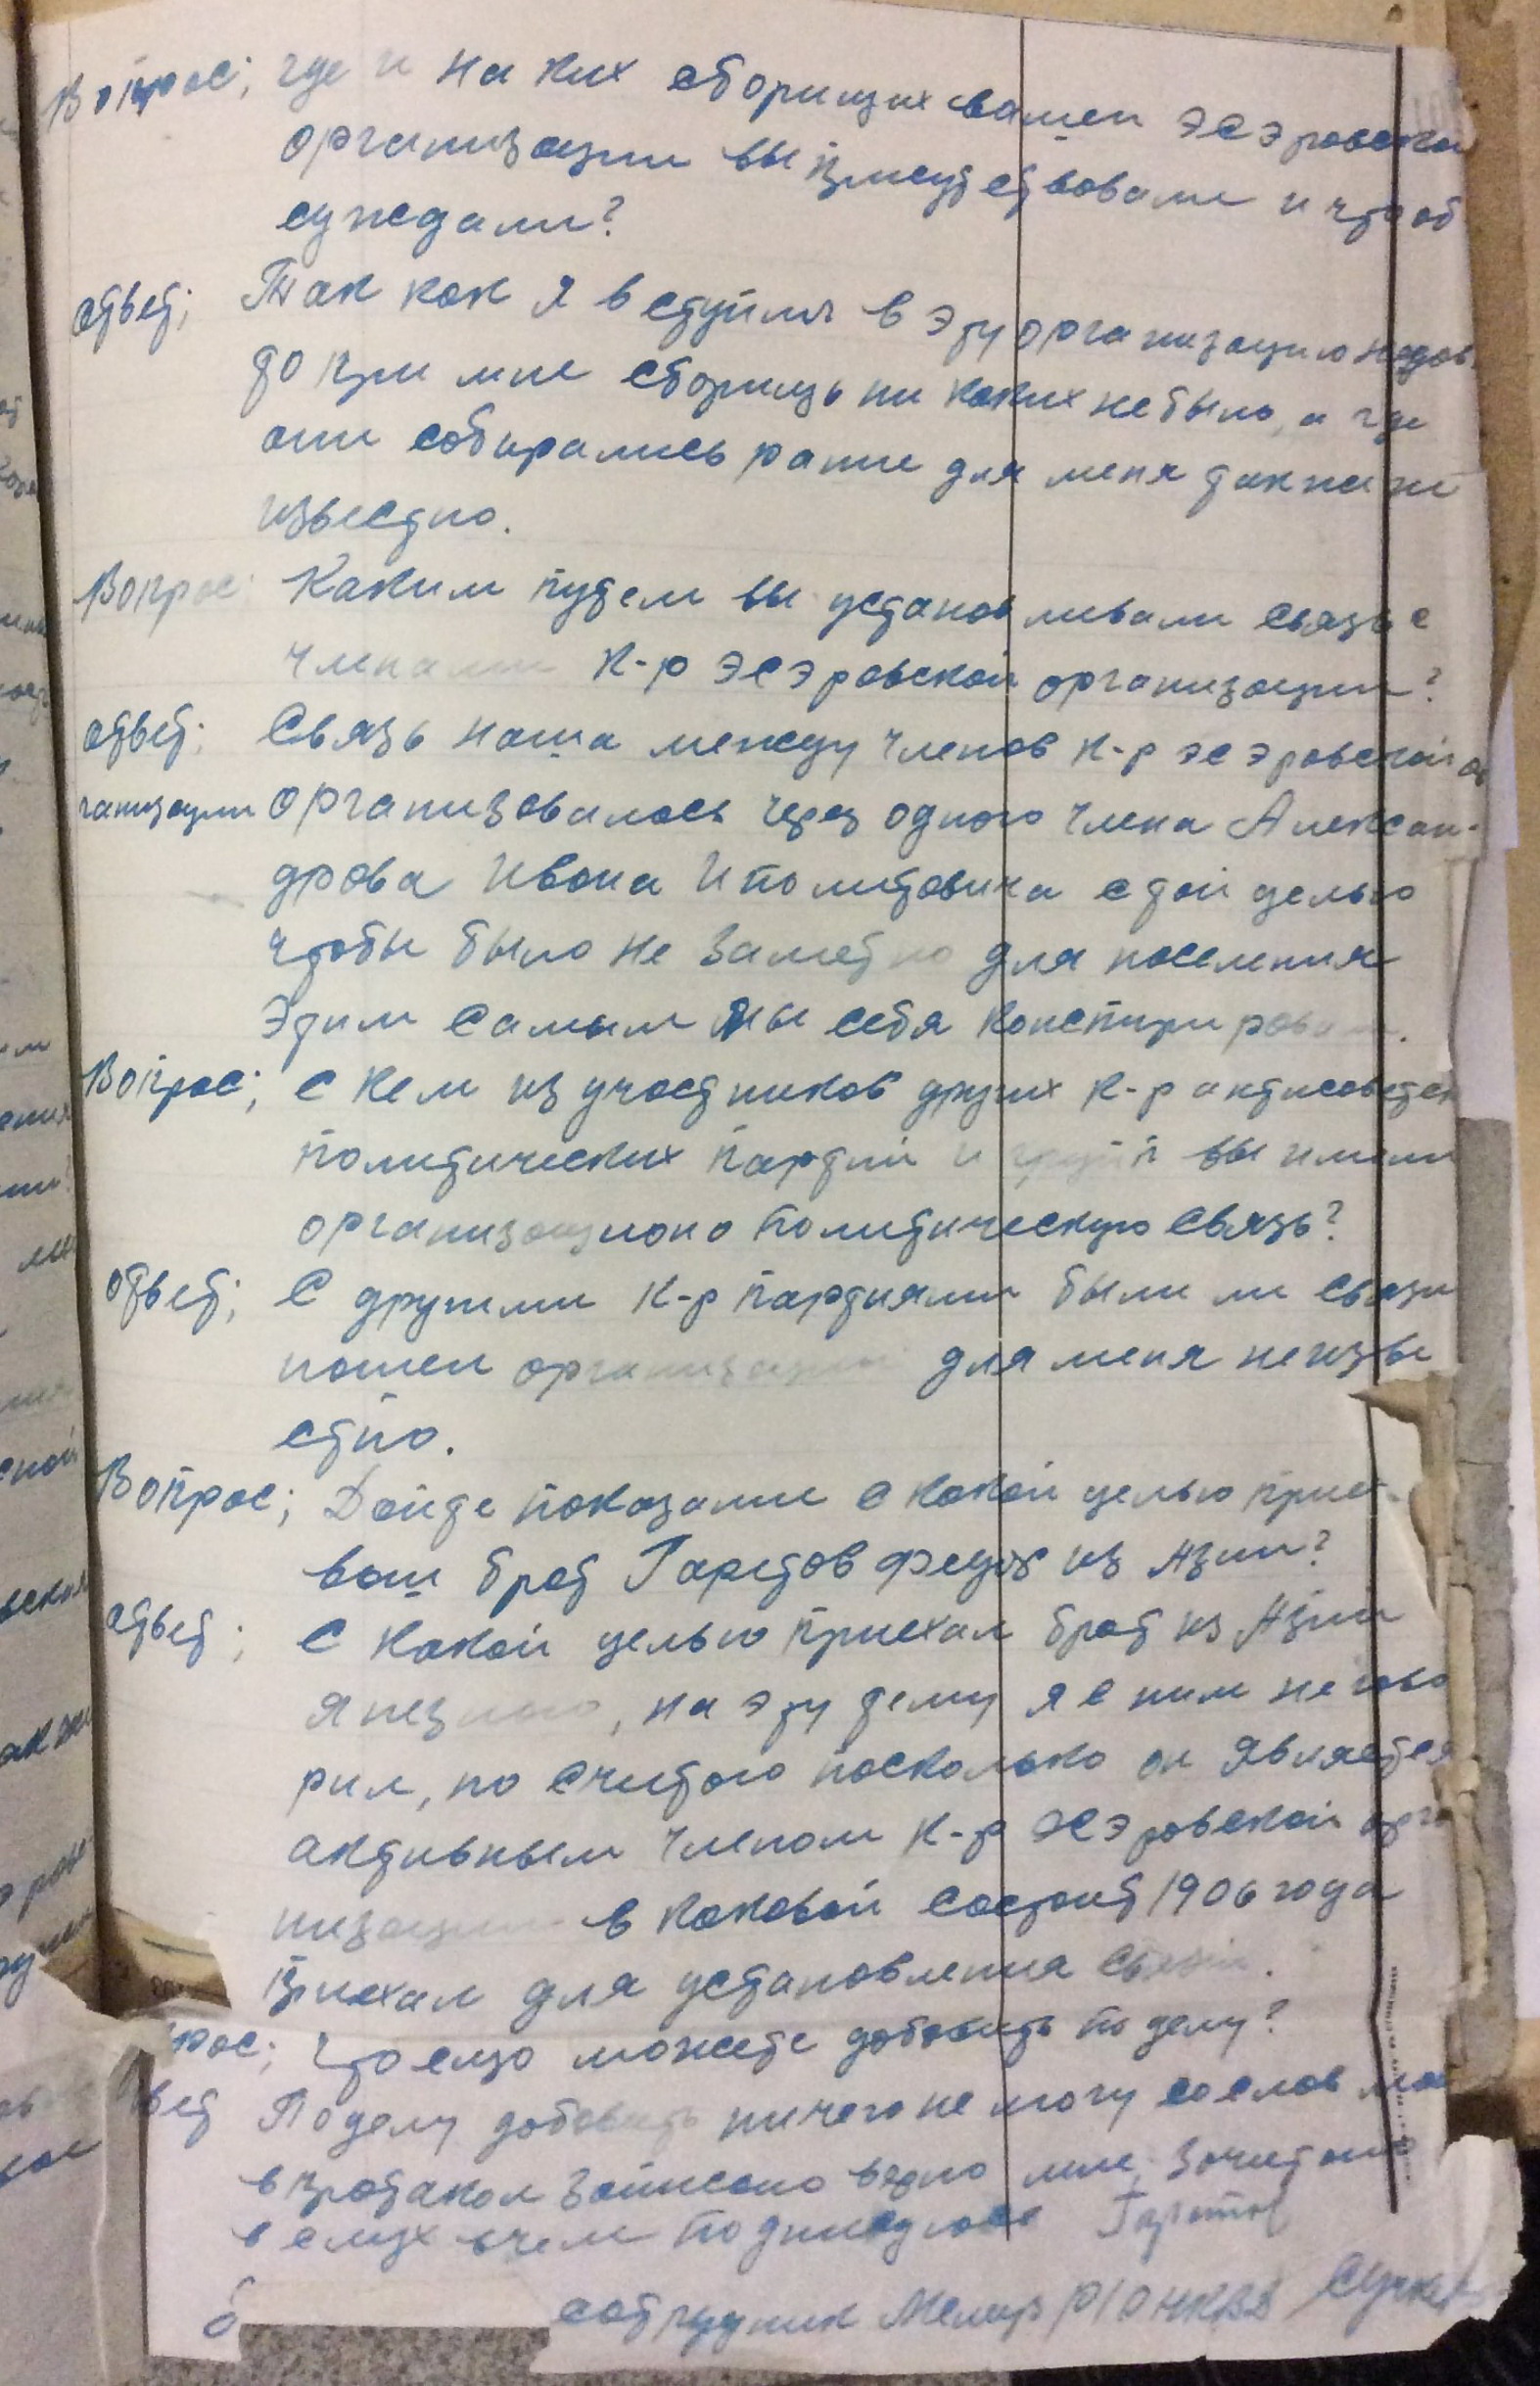 Вопрос; где и на ких сборищах вашей эсэровской
организации вы присутствовали и что об
суждали?
ответ; Так как я вступил в эту организацию недав
до при мне сборищь ни каких небыло, а где
они собирались ранне для меня также не
известно.
Вопрос: Каким путем вы устанавливали связь с
членами к-р эсэровской организации?
ответ: Связь наша между членов к-р эсэровской ор
ганизации организовалась через одного члена Алексан-
дрова Ивана Иполитовича с той целью
чтобы было не заметно для населения
Этим самым мы себя конспирировали.
Вопрос; С кем из участников других к-р антисоветск
политических партий и групп вы имели
организационо политическую связь?
ответ; С другими к-р партиями были ли связи
нашей организации для меня неизве
стно.
Вопрос; Дайте показание с какой целью приех.
ваш брат Гарстов Федор из Азии?
ответ; С какой целью приехал брат из Азии
я незнаю, на эту тему я с ним не гово
рил, но считаю поскольку он является
активным членом к-р эсэровской орга
низации в каковой состоит 1906 года
приехал для установления связи.
прос; Что еще можете добавить по делу?
вет По делу добавить ничего не могу со слов мои
в протакол записано верно мне, зачитано
в слух в чем подписуюсь
сотрудник Мелир Р/О НКВД